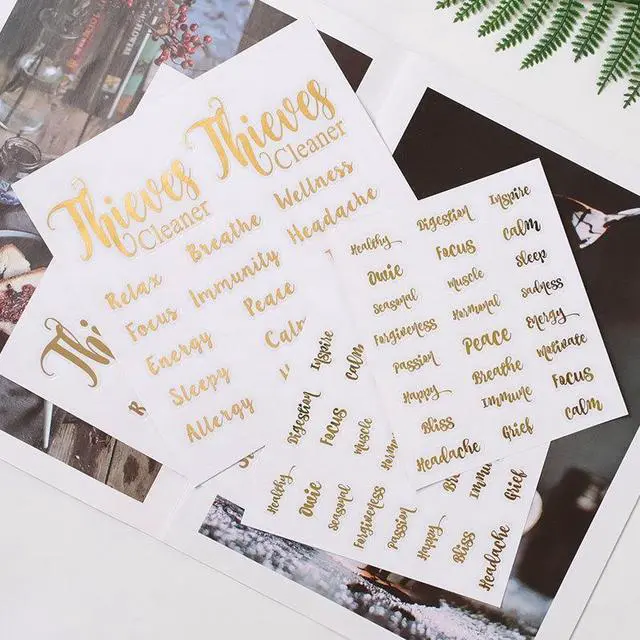 Thieves
Cleaner
Thieves
Cleaner
Relax
Breathe
Wellness
Focus
Immunity
Headache
Energy
Peace
Sleepy
Calm
Allergy
Healthy
Digestion
Inspire
Owie
Focus
Calm
Seasonal
Muscle
Sleep
Forgiveness
Hormonal
Sadness
Passion
Peace
Energy
Happy
Breathe
Motivate
Bliss
Immune
Focus
Headache
Grief
Calm
Digestion
Inspire
Focus
Calm
Muscle
Healthy
Owie
Seasonal
Forgiveness
Passion
Happy
Bliss
Headache
Immune
Grief